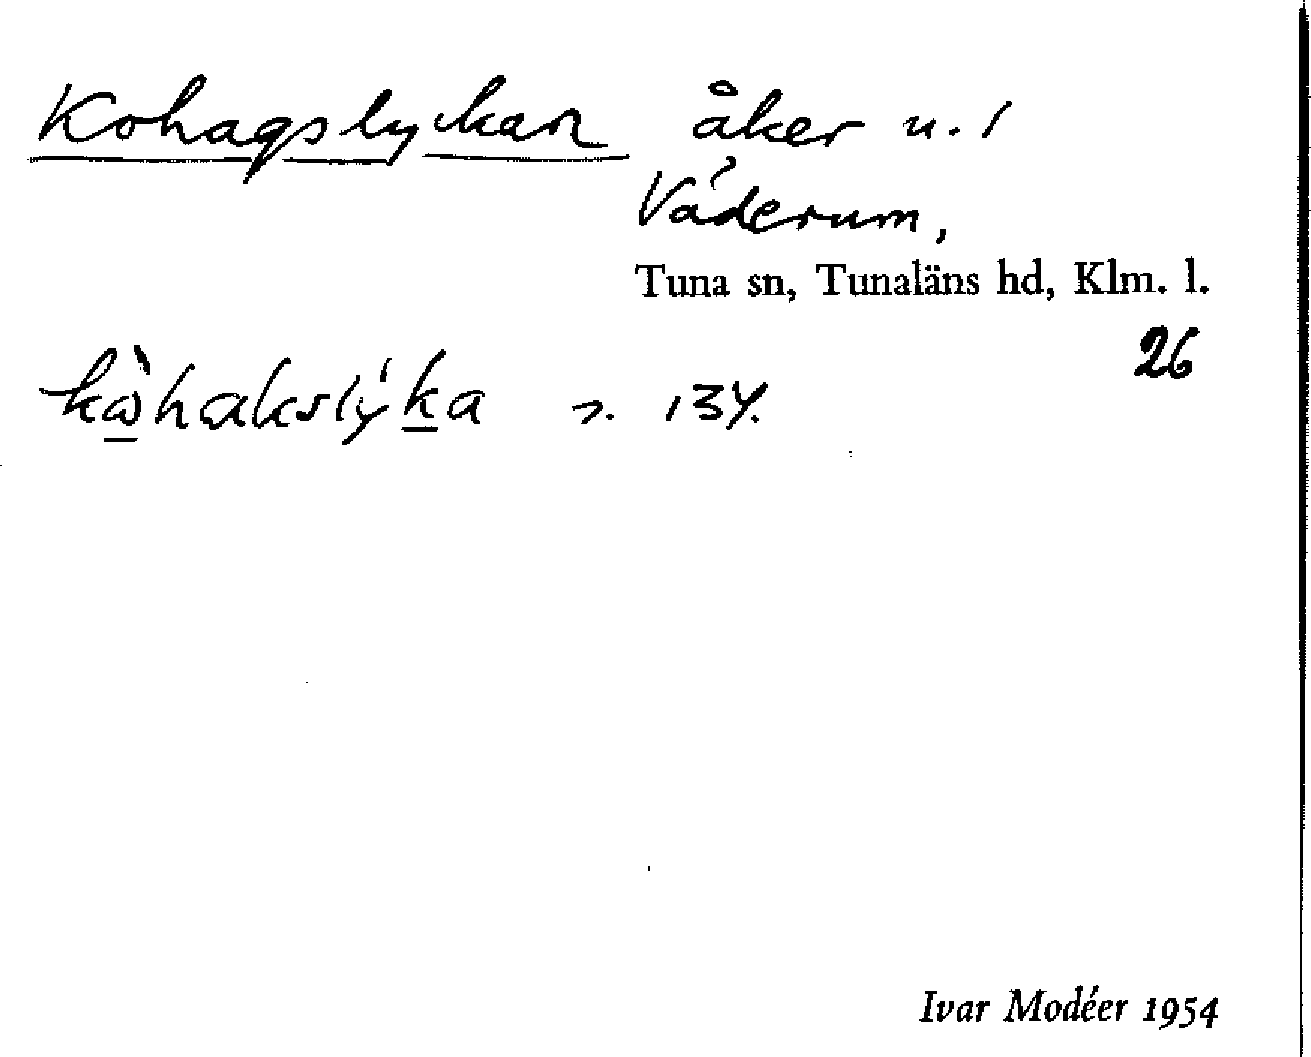 Kohagslyckan åker u. 1
Väderum,
Tuna sn, Tunaläns hd, Klm. l.
26
kὼhakslýka n. 134.
Ivar Modéer 1954